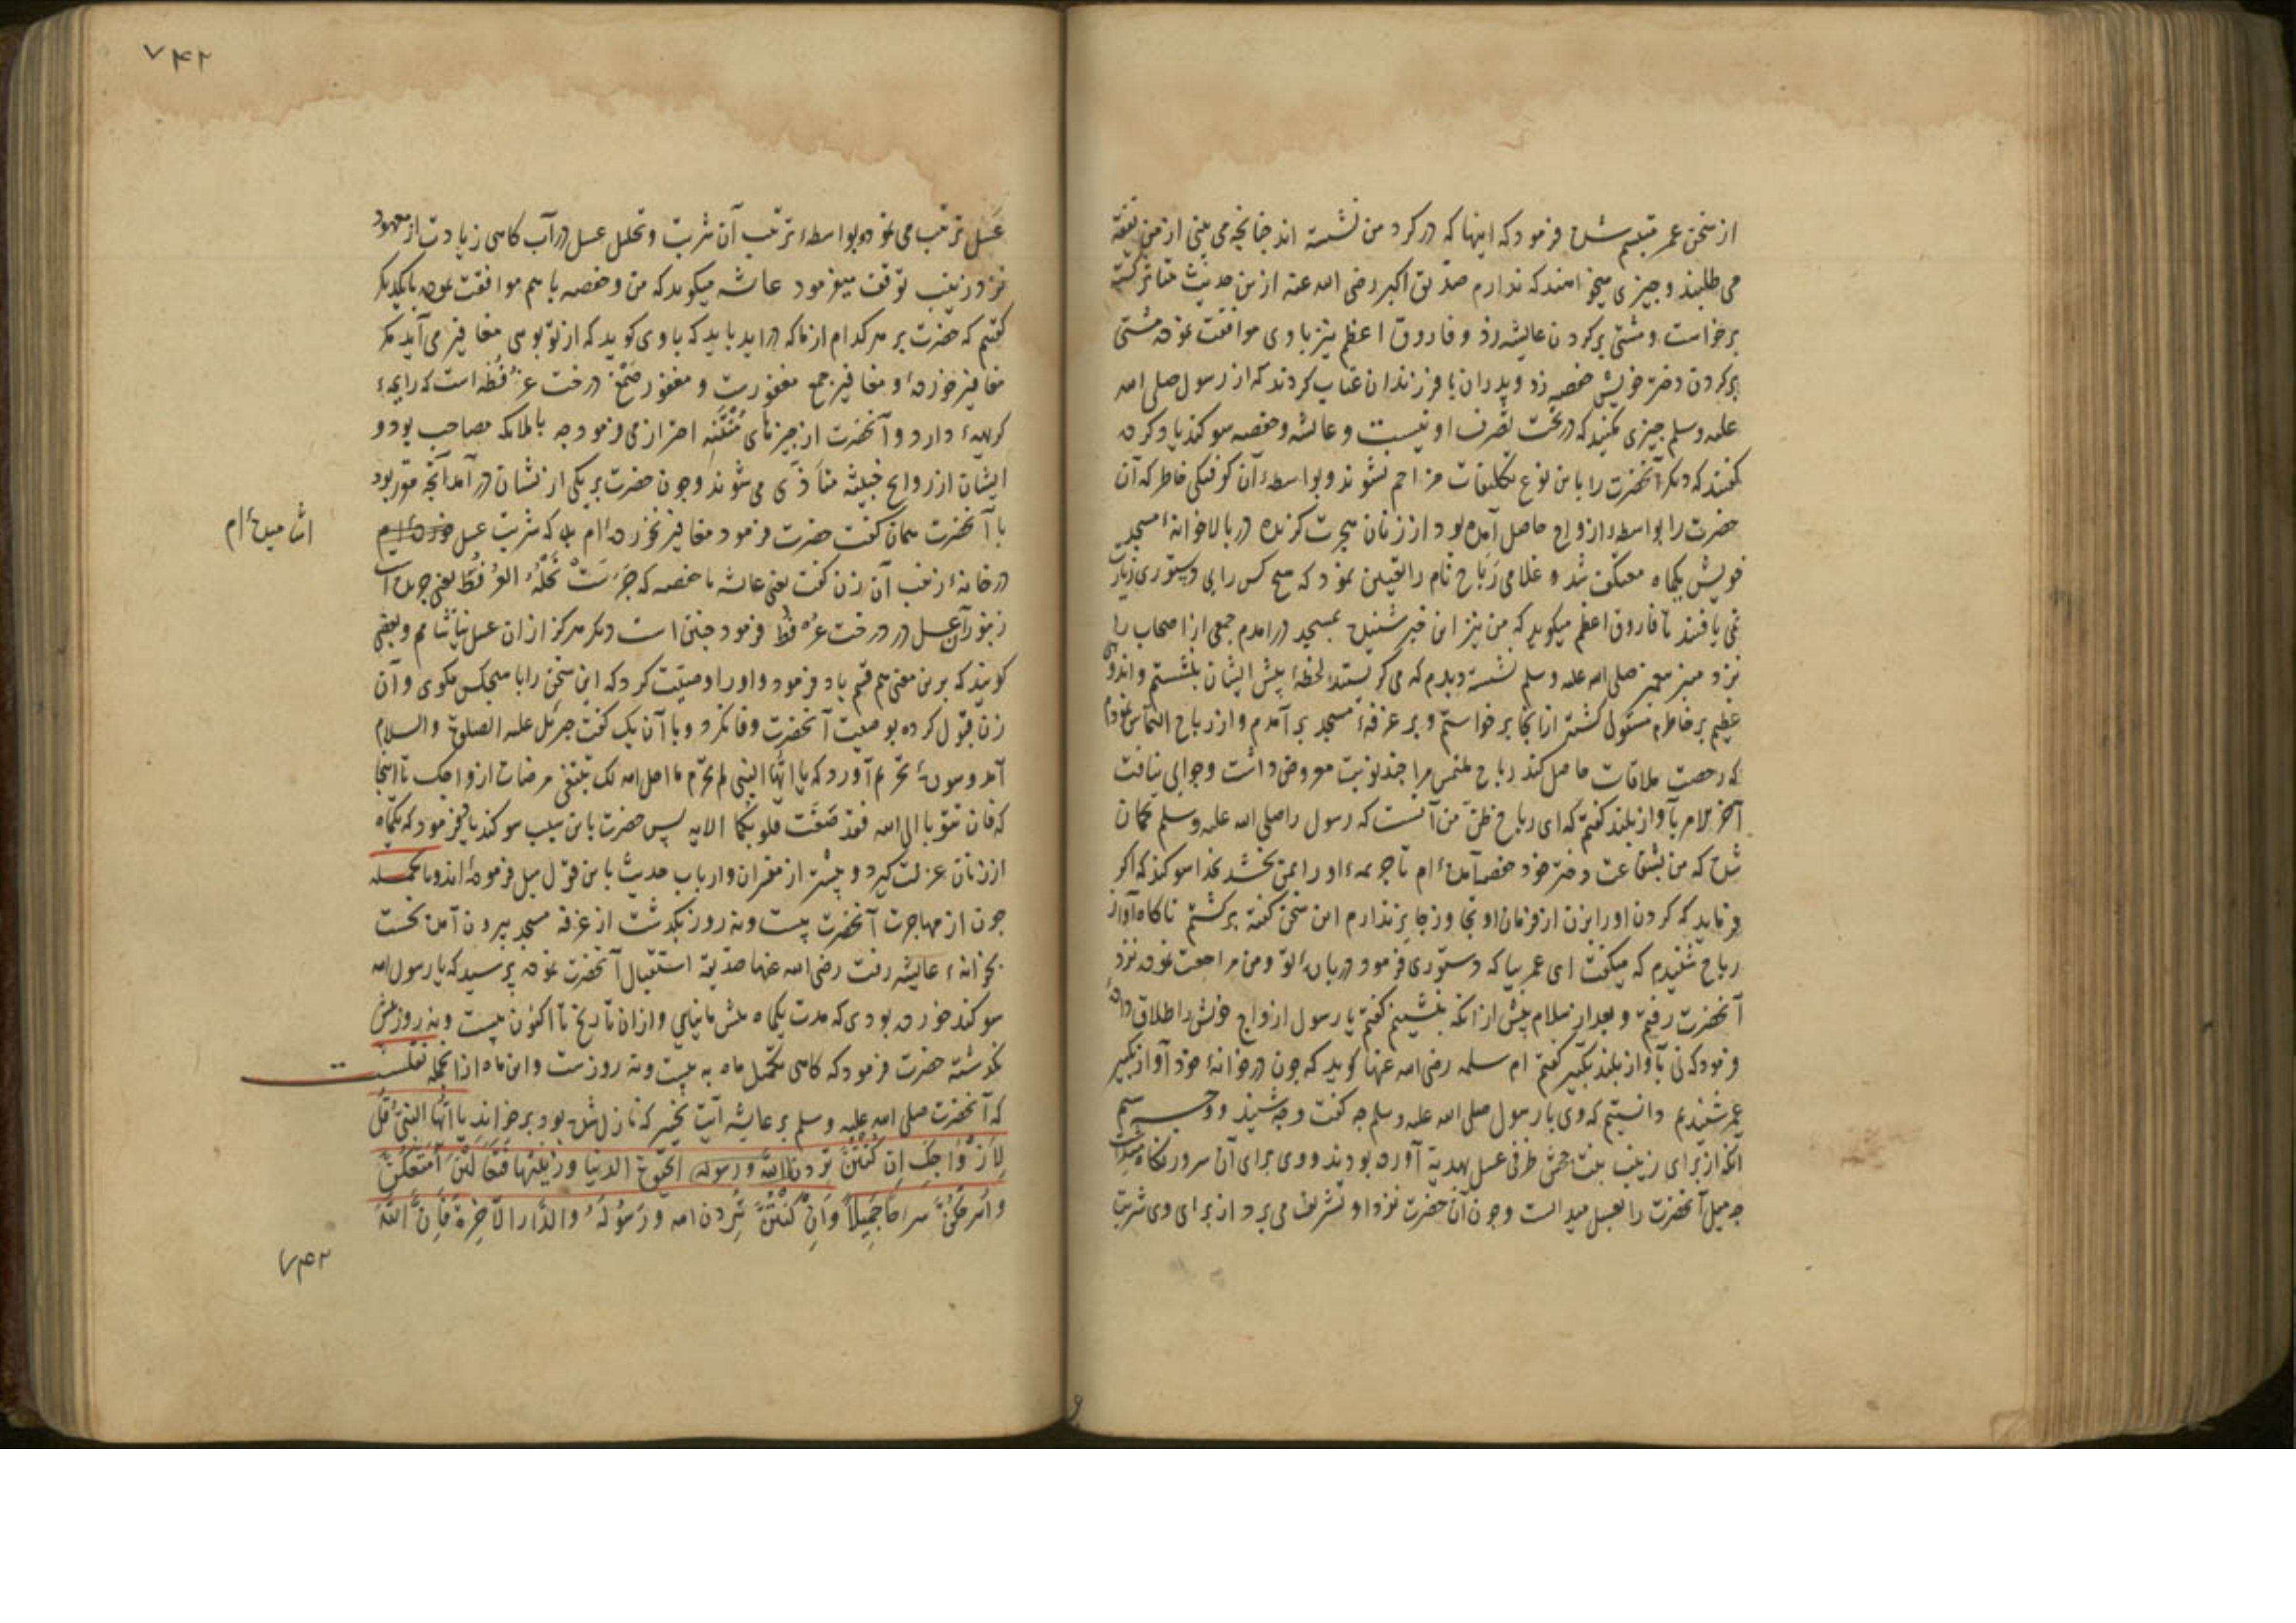 از سخن عمر متبسم شده فرمود که اینها که در کرد من نشسته اند چنانچه می بینی از من نفقه
می طلبند و چیزی میخواهند که ندارم صدیق اکبر رضی الله عنه از ین حدیث متاثر کشته
برخاست و مشتی بر کردن عایشه زد و فاروق اعظم نیز با وی موافقت نموده مشتی
بر کردن دختر خویش حفصه زد و پدران با فرزندان عتاب کردند که از رسول صلی الله
علیه وسلم چیزی مکنید که در تحت تصرف او نیست و عایشه و حفصه سوکند یاد کرده
کفتند که دیکر آنحضرت را باین نوع تکلیفات مزاحم نشوند و بواسطهٔ آن کوفتکی خاطر که آن
حضرت را بواسطهٔ ازواج حاصل آمده بود از زنان هجرت کزیده در بالاخانهٔ مسجد
خویش یکماه معتکف شد و غلامی رباح نام را تعیین نمود که هیچ کس را بی دستوری زیارت
نمی یافتند تا فاروق اعظم میکوید که من نیز این خبر شنیده بمسجد درامدم جمعی از اصحاب را
نزد منبر پیغمبر صلی الله علیه وسلم نشسته دیدم که می کریستند لحظهٔ پیش ایشان بنشستم و اندوهی
عظیم بر خاطرم مستولی کشته از آنجا برخواستم و بر غرفهٔ مسجد بر آمدم و از رباح التماس نمودم
که رخصت ملاقات حاصل کند رباح ملتمس مرا چند نوبت معروض داشت و جوابی نیافت
آخر الامر بآواز بلند کفتم که ای رباح ظن من آنست که رسول را صلی الله علیه وسلم کمان
شده که من بشفاعت دختر خود حفصه آمدهٔ ام تا جریمهٔ او را بمن بخشد بخدا سوکند که اکر
فرماید که کردن او را بزن از فرمان او تجاوز جایز ندارم این سخن کفته برکشتم ناکاه آواز
رباح شنیدم که میکفت ای عمر بیا که دستوری فرمود در باب تو و من مراجعت نموده نزد
آنحضرت رفتم و بعد از سلام پیش از انکه بنشینم کفتم یا رسول ازواج خویش را طلاق دادهٔ
فرمود که نی بآواز بلند تکبیر کفتم ام سلمه رضی الله عنها کوید که چون در خانهٔ خود آواز تکبیر
عمر شنیدم دانستم که وی با رسول صلی الله علیه وسلم چه کفت و چه شنید و وجه
انکه از برای زینب بنت جحش ظرفی عسل بهدیه آورده بودند و وی برای آن سرور نکاه
چه میل آنحضرت را بعسل میدانست و چون آن حضرت نزد او تشریف می برد از برای وی شربت
۷۴۲
عسل ترتیب می نمود و بواسطهٔ ترتیب آن شربت و تحلل عسل در آب کاهی زیادت از معهود
نزد زینب توقف میفرمود عایشه میکوید که من و حفصه با هم موافقت نموده با یکدیکر
کفتیم که حضرت بر هر کدام از ما که در اید باید که با وی کوید که از تو بوی مغافیر می آید مکر
مغافیر خوردهٔ و مغافیر جمع مغفورست و مغفور صمغ درخت عرفطه است که رایحهٔ
کریههٔ دارد و آنحضرت از چیزهای منتنه احتراز می فرمود چه با ملایکه مصاحب بود و
ایشان از روایح خبیثه متاذی می شوند و چون حضرت بر یکی از نشان در آمد آنچه مقرر بود
با آنحضرت همان کفت حضرت فرمود مغافیر نخوردهٔ ام بلکه شربت عسل خورده ایم
اشامیدهٔ ام
در خانهٔ زینب آن زن کفت یعنی عایشه یا حفصه که جرست نحله العرفط یعنی چریده است
زنبور آن عسل در درخت عرفط فرمود چنین است دیکر هرکز از ان عسل نیاشامم و بعضی
کویند که برین معنی هم قسم یاد فرمود و او را وصیت کرد که این سخن را با هیچکس مکوی و آن
زن قبول کرده بوصیت آنحضرت وفا نکرد و با آن یک کفت جبرئل علیه الصلوة والسلام
آمد و سورهٔ تحریم آورد که یا ایها النبی لم تحرم ما احل الله لک تبتغی مرضات ازواجک تا اینجا
که فان تتوبا الی الله فقد صغت قلوبکما الایه پس حضرت باین سبب سوکند یاد فرمود که یکماه
از زنان عزلت کیرد و بیشتر از مفسران و ارباب حدیث باین قول میل فرمودهٔ اند و بالجمله
چون از مهاجرت آنحضرت بیست و نه روز بکذشت از غرفهٔ مسجد بیرون آمده نخست
بخانهٔ عایشه رفت رضی الله عنها صدیقه استقبال آنحضرت نموده پرسید که یا رسول الله
سوکند خورده بودی که مدت یکماه پیش ما نیایی و از ان تاریخ تا اکنون بیست و نه روز بیش
نکذشته حضرت فرمود که کاهی تکمیل ماه به بیست و نه روزست و این ماه از انجمله نقلست
که آنحضرت صلی الله علیه وسلم بر عایشه آیت تخییر که نازل شده بود بر خواند یا ایها النبی قل
لازواجک ان کنتن تردن الله ورسوله الحیوة الدنیا وزینتها فتعالین امتعکن
واسرحکن سراحا جمیلا وان کنتن تردن الله ورسوله والدار الاخرة فان الله
۷۴۲